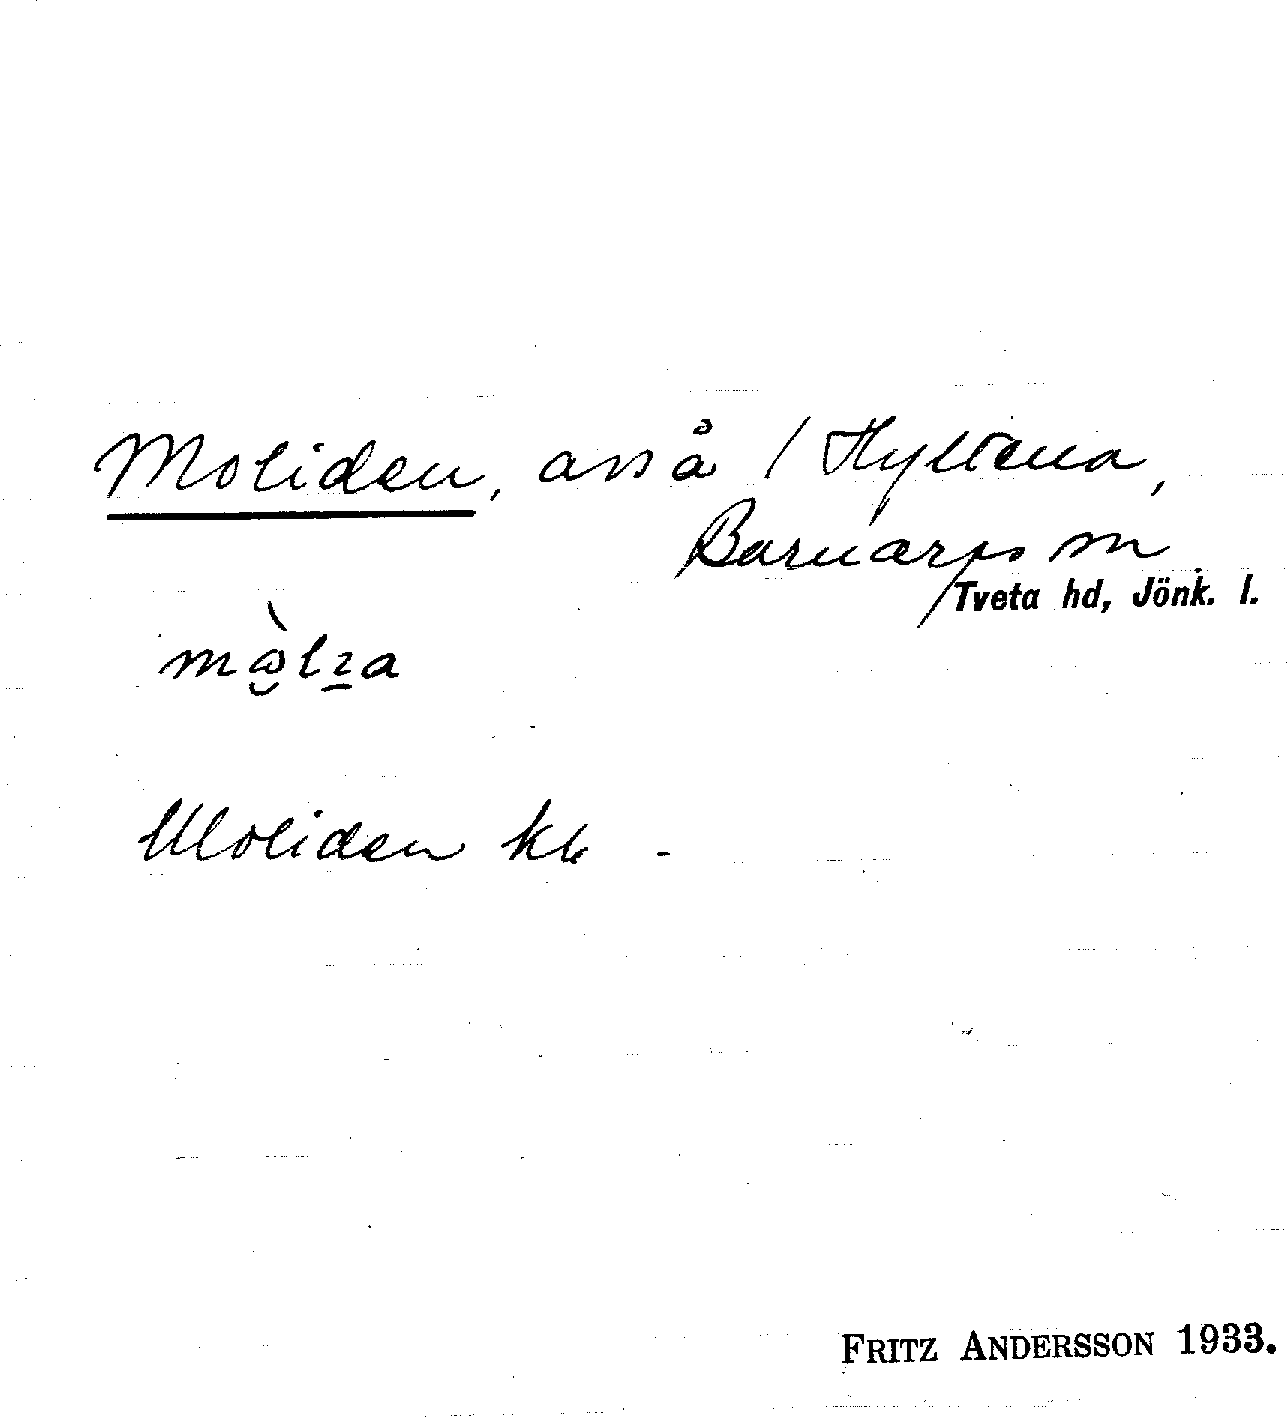 Moliden, avs å / Hyltena,
Barnarps sn
Tveta hd, Jönk. l.
Moliden kb -
FRITZ ANDERSSON 1933.